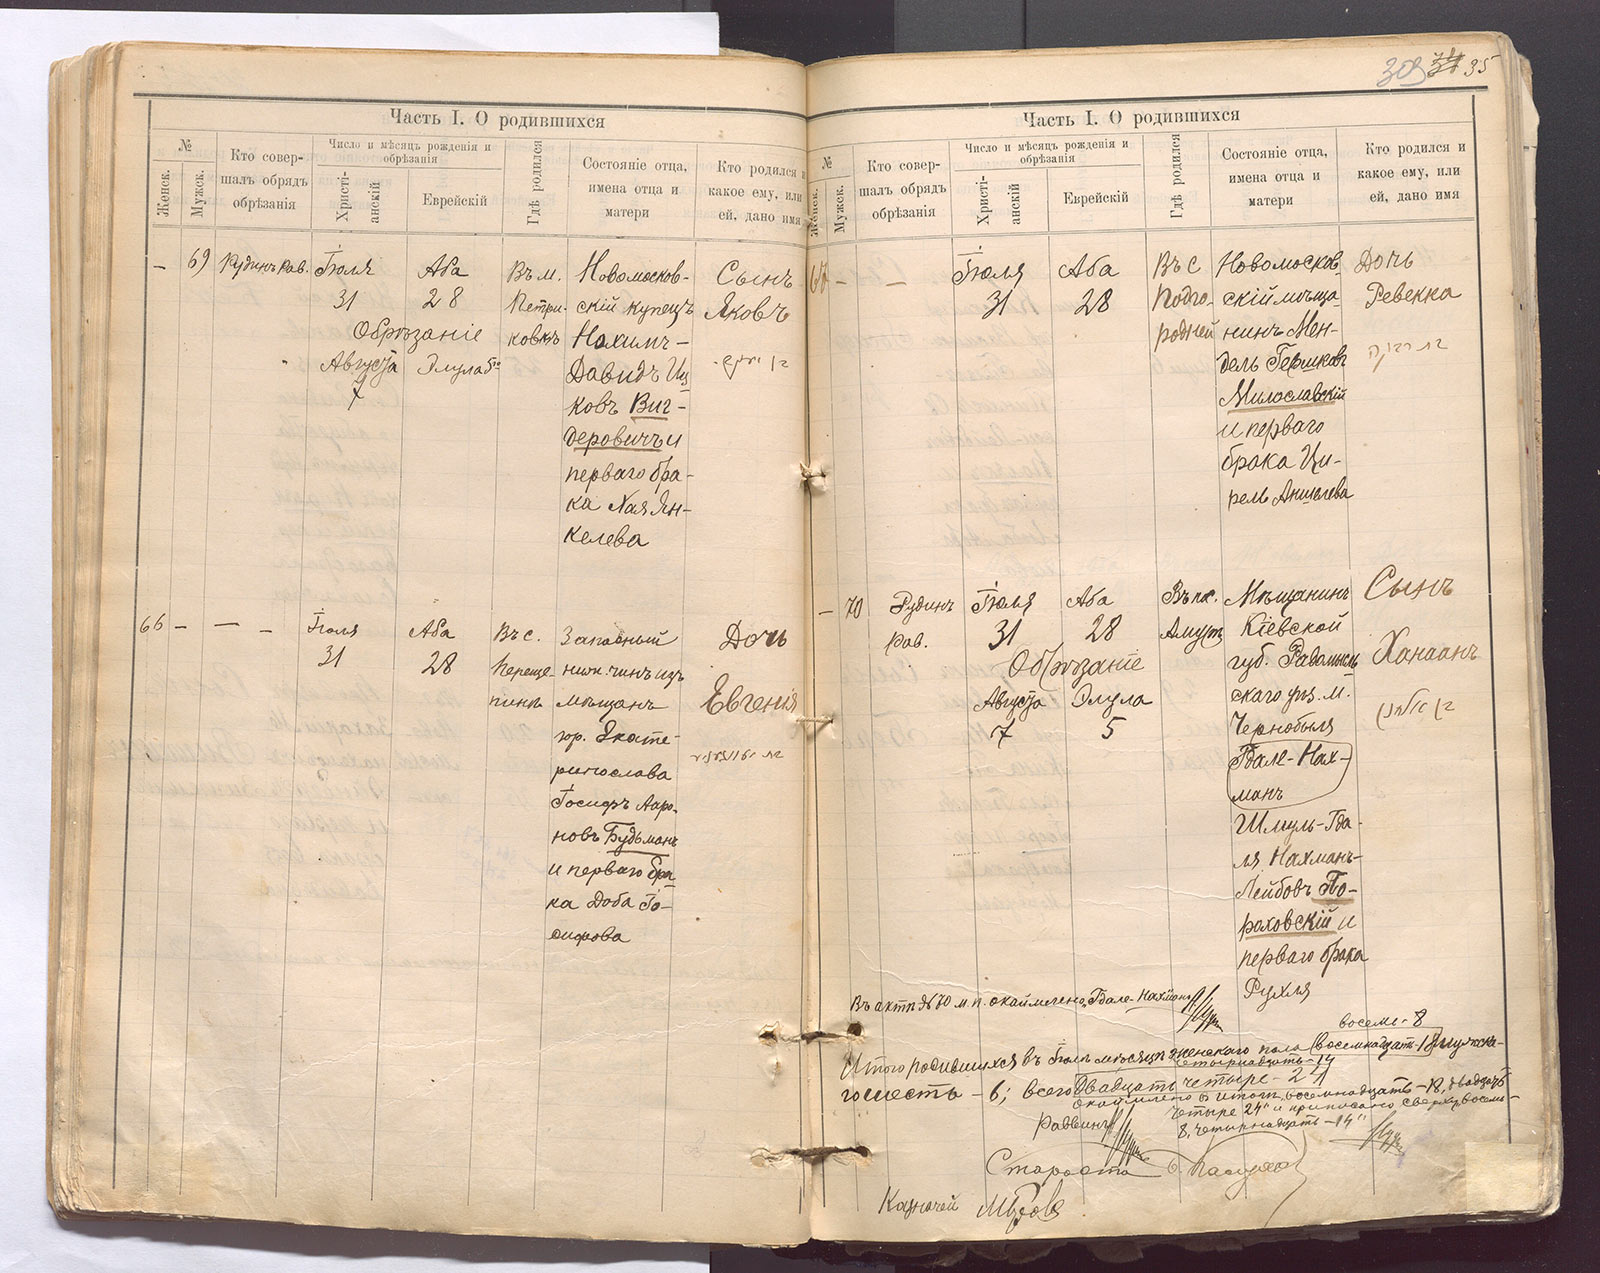 309 34 35
Часть I. О родившихся
№
Женск.
Мужск.
Кто совер-
шалъ обрядъ
обрѣзанія
Число и мѣсяцъ рожденія и
обрѣзанія
Христі-
анскій
Еврейскій
Гдѣ родился
Состояніе отца,
имена отца и
матери
Кто родился и
какое ему, или
ей, дано имя
– 69 Рудинъ Рав.
Іюля
31
Обрѣзаніе
Августа
7
Аба
28
Элула 5го
Въ м.
Петри-
ковкѣ
Новомосков-
скій купецъ
Нахимъ-
Давидъ Иц
ковъ Виг-
деровичъ и
перваго бра-
ка Хая Ян-
келева
Сынъ
Яковъ
66 – – –
Іюля
31
Аба
28
Въ с.
Переще-
пинѣ
Запасный
нижн. чинъ изъ
мѣщанъ
гор. Екате-
ринослава
Іосифъ Ааро-
новъ Будьманъ
и перваго бра
ка Доба Іо-
сифова
Дочь
Евгенія
Часть I. О родившихся
№
Женск.
Мужск.
Кто совер-
шалъ обрядъ
обрѣзанія
Число и мѣсяцъ рожденія и
обрѣзанія
Христі-
анскій
Еврейскій
Гдѣ родился
Состояніе отца,
имена отца и
матери
Кто родился и
какое ему, или
ей, дано имя
67 – –
Іюля
31
Аба
28
Въ с
Подго-
родней
Новомосков
скій мѣща
нинъ Мен-
дель Гершковъ
Милославскій
и перваго
брака Ци-
рель Аншелева
Дочь
Ревекка
בת רבקה
– 70 Рудинъ
Рав.
Іюля
31
Обрѣзаніе
Августа
7
Аба
28
Элула
5
Въ пос.
Амур
Мѣщанинъ
Кіевской
губ. Радомысль
скаго уѣз. м.
Чернобыля
Гдале-Нах-
манъ
Шмуль-Гда-
ля Нахманъ-
Лейбовъ По-
роховскій и
перваго брака
Рухля
Сынъ
Ханаанъ
Въ актѣ № 70 м. п. окаймлено „Гдале-Нахманъ“
восемь - 8
Итого родившихся въ Іюлѣ мѣсяцѣ женскаго пола восемнадцать - 18, мужска-
четырнадцать - 14
го шесть - 6; всего двадцать четыре - 24
окаймлено въ итогѣ „восемнадцать - 18, двадцать
четыре 24“ и приписано сверху „восемь -
8, четырнадцать - 14“
Раввинъ
Староста
Казначей